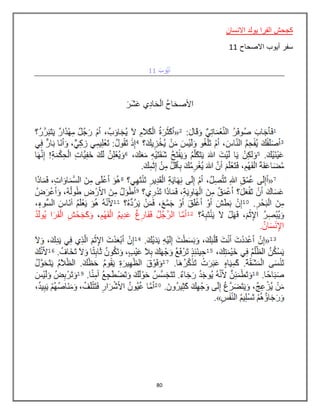 كجحش الفرا يولد الانسان
سفر أيوب الاصحاح 11
أَيُّوبَ 11
الأصحَاحُ الْحَادِي عَشَرَ
1فَأَجَابَ صُوفَرُ النَّعْمَاتِيُّ وَقَالَ: 2«أَكَثْرَةُ الْكَلاَمِ لاَ يُجَاوَبُ، أَمْ رَجُلٌ مِهْذَارٌ يَتَبَرَّرُ؟
3أَصَلَفُكَ يُفْحِمُ النَّاسَ، أَمْ تَلْغُو وَلَيْسَ مَنْ يُخْزِيكَ؟ 4إِذْ تَقُولُ: تَعْلِيمِي زَكِيٌّ، وَأَنَا بَارٌّ فِي
عَيْنَيْكَ. 5وَلكِنْ يَا لَيْتَ اللهَ يَتَكَلَّمُ وَيَفْتَحُ شَفَتَيْهِ مَعَكَ، 6وَيُعْلِنُ لَكَ خَفِيَّاتِ الْحِكْمَةِ! إِنَّهَا
مُضَاعَفَةُ الْفَهْمِ، فَتَعْلَمَ أَنَّ اللهَ يُغَرِّمُكَ بِأَقَلَّ مِنْ إِثْمِكَ.
7«أَإِلَى عُمْقِ اللهِ تَتَّصِلُ، أَمْ إِلَى نِهَايَةِ الْقَدِيرِ تَنْتَهِي؟ 8هُوَ أَعْلَى مِنَ السَّمَاوَاتِ، فَمَاذَا
عَسَاكَ أَنْ تَفْعَلَ؟ أَعْمَقُ مِنَ الْهَاوِيَةِ، فَمَاذَا تَدْرِي؟ 9أَطْوَلُ مِنَ الأَرْضِ طُولُهُ، وَأَعْرَضُ
مِنَ الْبَحْرِ. 10إِنْ بَطَشَ أَوْ أَغْلَقَ أَوْ جَمَّعَ، فَمَنْ يَرُدُّهُ؟ 11لأَنَّهُ هُوَ يَعْلَمُ أُنَاسَ السُّوءِ،
وَيُبْصِرُ الإِثْمَ، فَهَلْ لاَ يَنْتَبِهُ؟ 12أَمَّا الرَّجُلُ فَفَارِغٌ عَدِيمُ الْفَهْمِ، وَكَجَحْشِ الْفَرَا يُولَدُ
الإِنْسَانُ.
13«إِنْ أَعْدَدْتَ أَنْتَ قَلْبَكَ، وَبَسَطْتَ إِلَيْهِ يَدَيْكَ. 14إِنْ أَبْعَدْتَ الإِثْمَ الَّذِي فِي يَدِكَ، وَلاَ
يَسْكُنُ الظُّلْمُ فِي خَيْمَتِكَ، 15حِينَئِذٍ تَرْفَعُ وَجْهَكَ بِلاَ عَيْبٍ، وَتَكُونُ ثَابِتًا وَلاَ تَخَافُ. 16لأَنَّكَ
تَنْسَى الْمَشَقَّةَ. كَمِيَاهٍ عَبَرَتْ تَذْكُرُهَا. 17وَفَوْقَ الظَّهِيرَةِ يَقُومُ حَظُّكَ. الظَّلاَمُ يَتَحَوَّلُ
صَبَاحًا. 18وَتَطْمَئِنُّ لأَنَّهُ يُوجَدُ رَجَاءٌ. تَتَجَسَّسُ حَوْلَكَ وَتَضْطَجعُ آمِنًا. 19وَتَرْبِضُ وَلَيْسَ
مَنْ يُزْعِجُ، وَيَتَضَرَّعُ إِلَى وَجْهِكَ كَثِيرُونَ. 20أَمَّا عُيُونُ الأَشْرَارِ فَتَتْلَفُ، وَمَنَاصُهُمْ يَبِيدُ،
وَرَجَاؤُهُمْ تَسْلِيمُ النَّفْسِ».
80